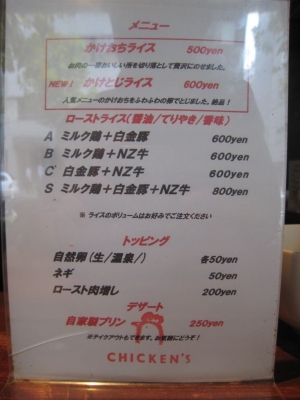 メニュー
かけおちライス 500yen
お肉の一番おいしい所を切り落として贅沢にのせました。
NEW! かけとじライス 600yen
人気メニューのかけおちをふわふわの卵でとじました。絶品！
ローストライス(醤油/てりやき/香味)
A ミルク鶏＋白金豚 600yen
B ミルク鶏＋NZ牛 600yen
C 白金豚＋NZ牛 600yen
S ミルク鶏＋白金豚＋NZ牛 800yen
※ ライスのボリュームはお好みでご注文ください
トッピング
自然卵(生/温泉/) 各50yen
ネギ 50yen
ロースト肉増し 200yen
デザート
自家製プリン 250yen
※テイクアウトもできます。お気軽にどうぞ！
CHICKEN'S